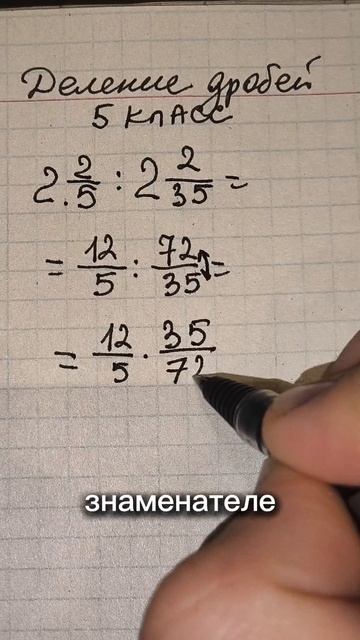 Деление дробей
5 класс
2 2/5 : 2 2/35 =
= 12/5 : 72/35 =
= 12/5 · 35/72
знаменателе